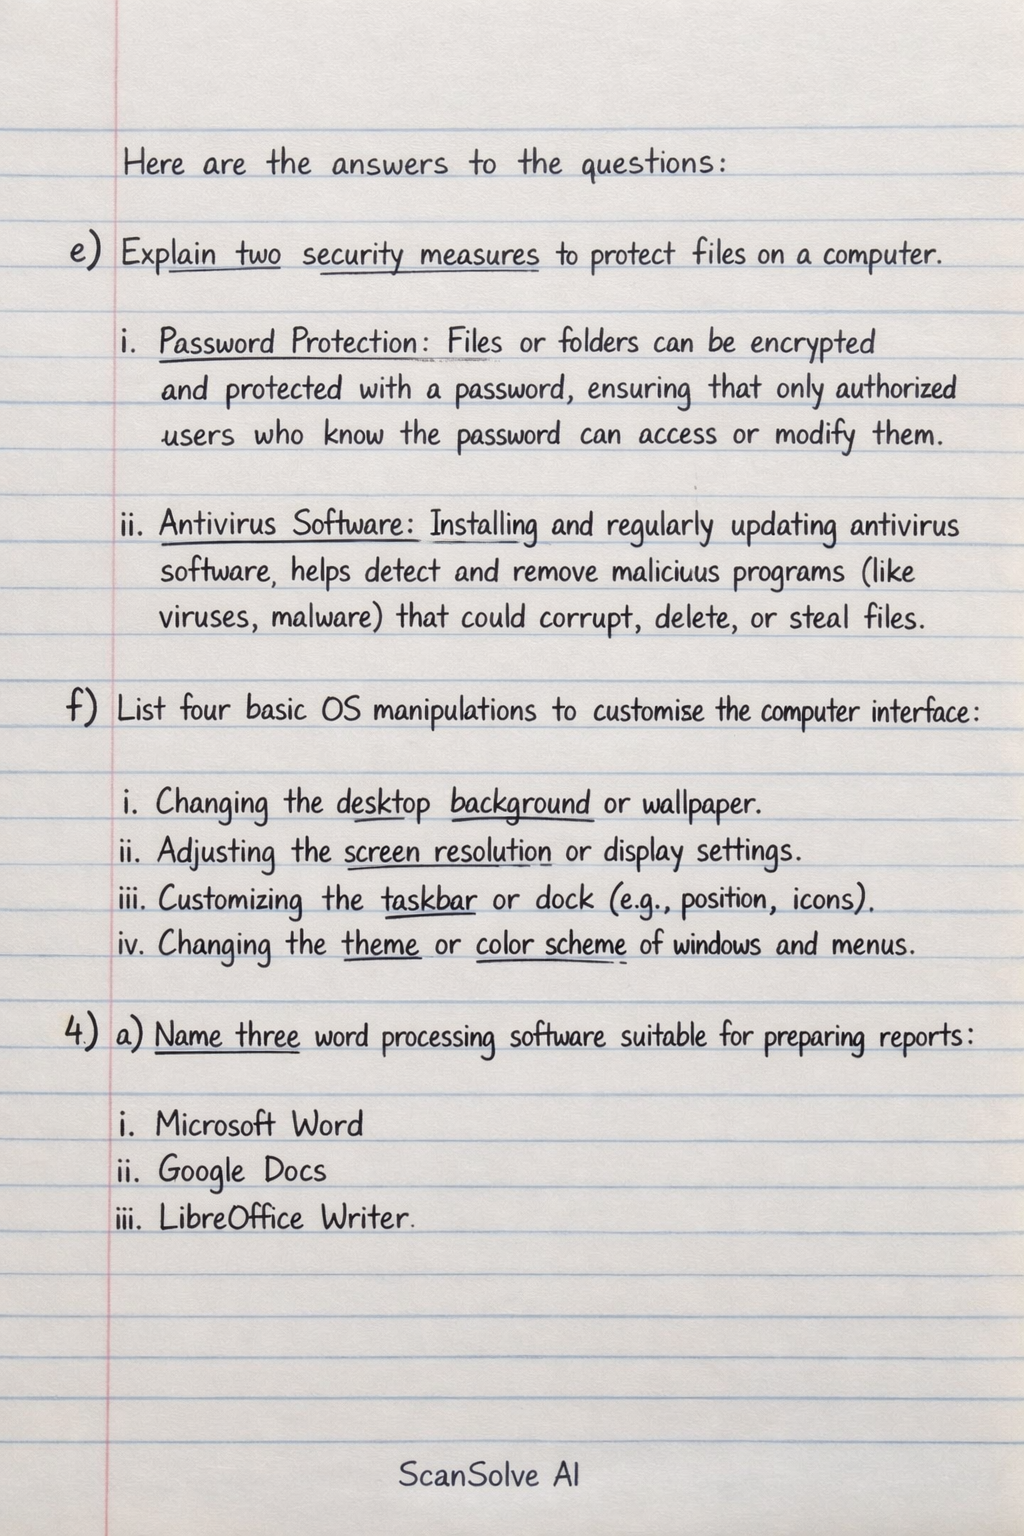 Here are the answers to the questions:
e) Explain two security measures to protect files on a computer.
i. Password Protection: Files or folders can be encrypted
and protected with a password, ensuring that only authorized
users who know the password can access or modify them.
ii. Antivirus Software: Installing and regularly updating antivirus
software, helps detect and remove maliciuus programs (like
viruses, malware) that could corrupt, delete, or steal files.
f) List four basic OS manipulations to customise the computer interface:
i. Changing the desktop background or wallpaper.
ii. Adjusting the screen resolution or display settings.
iii. Customizing the taskbar or dock (e.g., position, icons).
iv. Changing the theme or color scheme of windows and menus.
4.) a) Name three word processing software suitable for preparing reports:
i. Microsoft Word
ii. Google Docs
iii. LibreOffice Writer.
ScanSolve AI